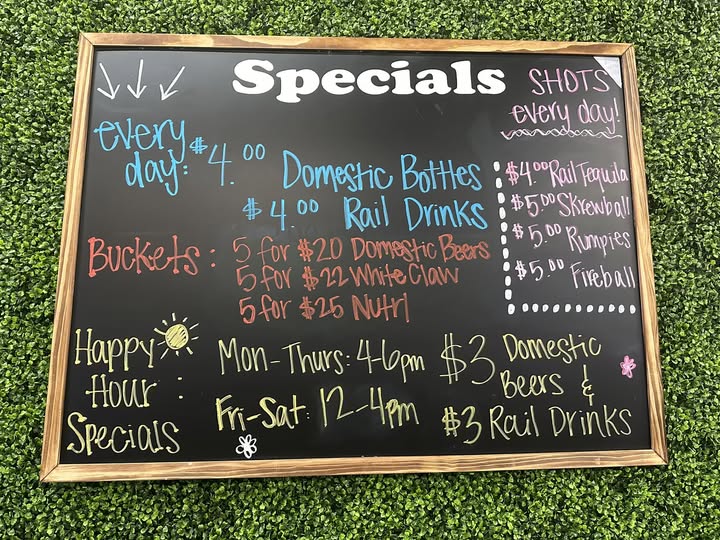 Specials
every
day:
$4.00 Domestic Bottles
$4.00 Rail Drinks
Buckets:
5 for $20 Domestic Beers
5 for $22 White Claw
5 for $25 Nutrl
Happy
Hour:
Specials
Mon-Thurs: 4-6pm
Fri-Sat: 12-4pm
$3 Domestic
Beers &
$3 Rail Drinks
SHOTS
every day!
$4.00 Rail Tequila
$5.00 Skrewball
$5.00 Rumpies
$5.00 Fireball